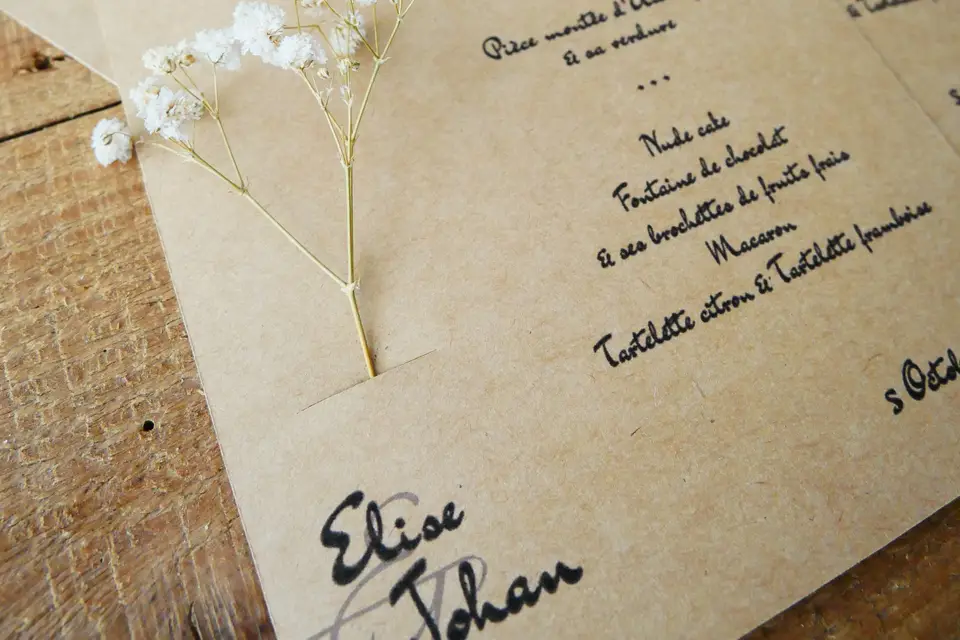 Pièce montée
Et sa verdure
...
Nude cake
Fontaine de chocolat
Et ses brochettes de fruits frais
Macaron
Tartelette citron & Tartelette framboise
5
Elise
Johan